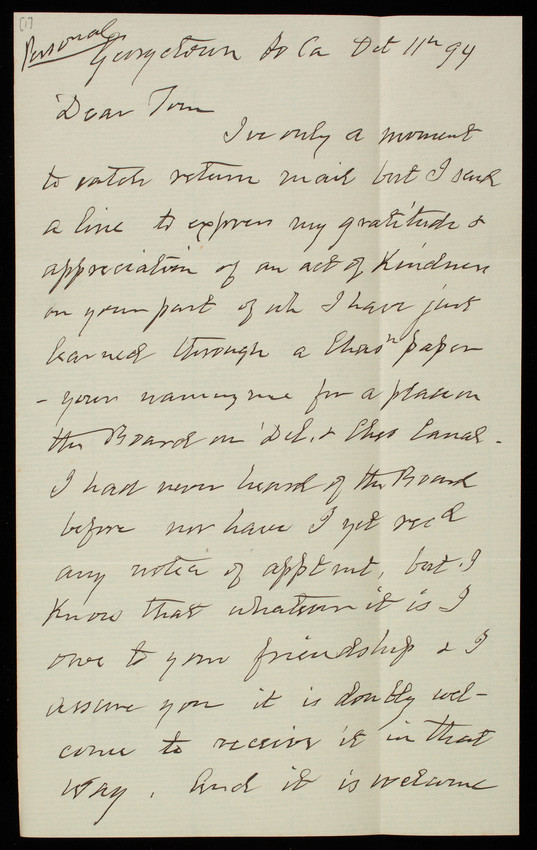 [1]
Personal
Georgetown So Ca Oct 11th 94
Dear Tom
I've only a moment
to catch return mail but I send
a line to express my gratitude &
appreciation of an act of Kindness
on your part of wh I have just
learned through a Chasn paper
- your naming me for a place on
the Board on Del. & Ches Canal -
I had never heard of the Board
before nor have I yet recd
any notice of apptmt, but I
Know that whatever it is I
owe to your friendship & I
assure you it is doubly wel-
come to receive it in that
way. And it is welcome